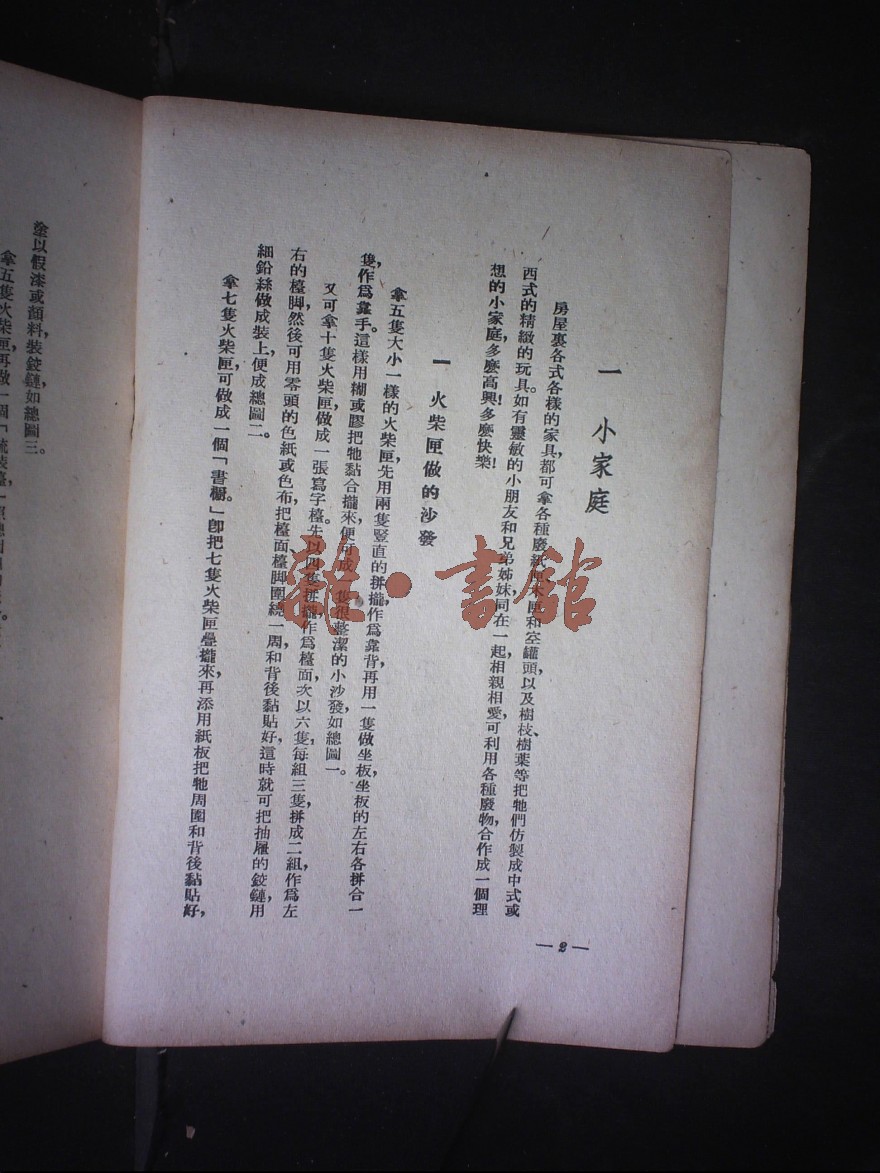 一　小家庭
房屋裏各式各樣的家具，都可拿各種廢紙匣木匣和空罐頭，以及樹枝、樹葉等把牠們仿製成中式或
西式的精緻的玩具。如有靈敏的小朋友和兄弟姊妹同在一起，相親相愛，可利用各種廢物合作成一個理
想的小家庭，多麼高興！多麼快樂！
一　火柴匣做的沙發
拿五隻大小一樣的火柴匣，先用兩隻豎直的拼攏作爲靠背，再用一隻做坐板，坐板的左右各拼合一
隻，作爲靠手。這樣用糊或膠把牠黏合攏來，便可成一隻很整潔的小沙發，如總圖一。
又可拿十隻火柴匣，做成一張寫字檯。先以四隻拼攏作爲檯面，次以六隻，每組三隻，拼成二組，作爲左
右的檯脚，然後可用零頭的色紙或色布把檯面、檯脚圍繞一周，和背後黏貼好，這時就可把抽屜的鉸鏈，用
細鉛絲做成裝上，便成總圖二。
拿七隻火柴匣，可做成一個「書櫥。」卽把七隻火柴匣疊攏來，再添用紙板把牠周圍和背後黏貼好，
— 2 —
塗以假漆或顏料，裝鉸鏈，如總圖三。
拿五隻火柴匣，再做一個「梳裝檯」
雜·書館